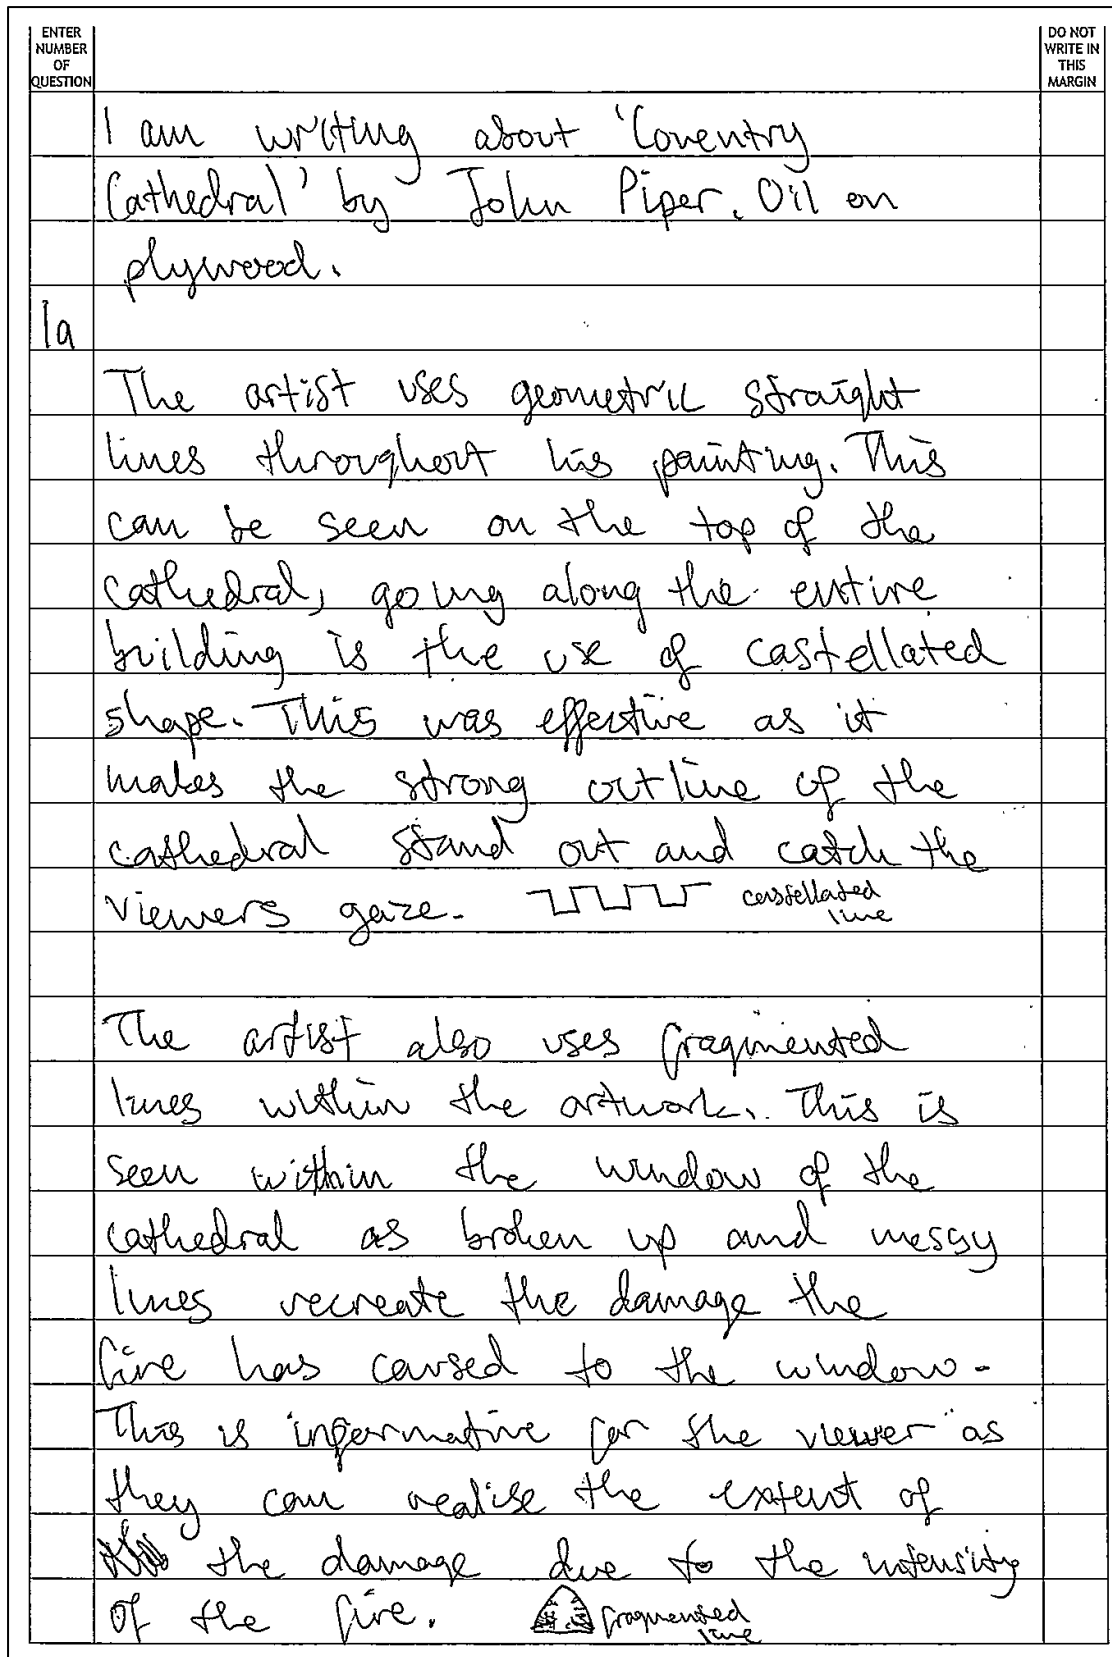 ENTER
NUMBER
OF
QUESTION
DO NOT
WRITE IN
THIS
MARGIN
I am writing about 'Coventry
Cathedral' by John Piper. Oil on
plywood.
1a
The artist uses geometric straight
lines throughout his painting. This
can be seen on the top of the
cathedral, going along the entire
building is the use of castellated
shape. This was effective as it
makes the strong outline of the
cathedral stand out and catch the
viewers gaze. castellated
line
The artist also uses fragmented
lines within the artwork. This is
seen within the window of the
cathedral as broken up and messy
lines recreate the damage the
fire has caused to the window.
This is informative for the viewer as
they can realise the extent of
the damage due to the intensity
of the fire. fragmented
line